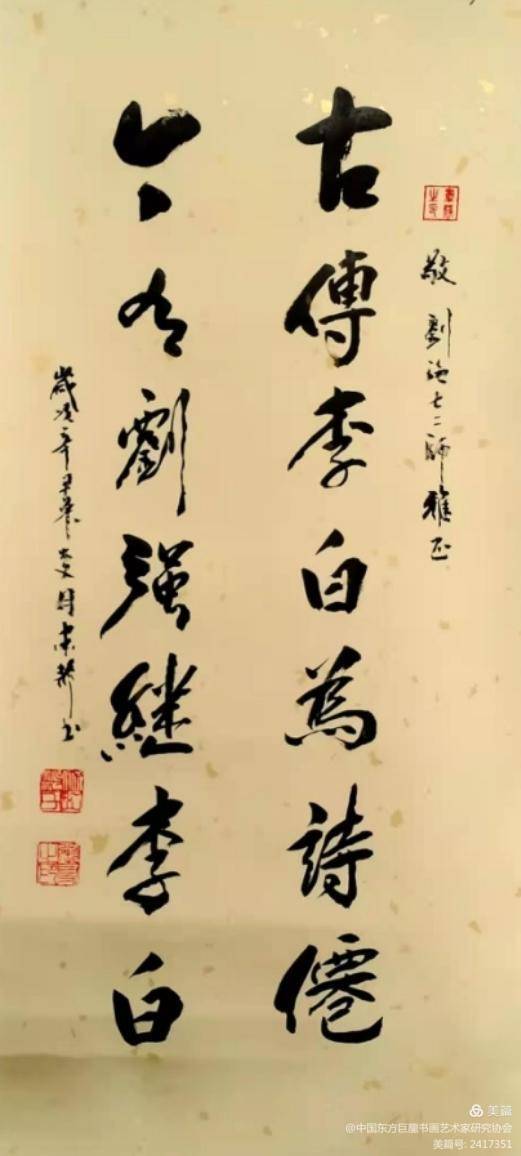 敬 劉 七二師雅正
古傳李白為詩僊
今有劉強繼李白
歲次辛丑 書
美篇
@中国东方巨星书画艺术家研究协会
美篇号: 2417351